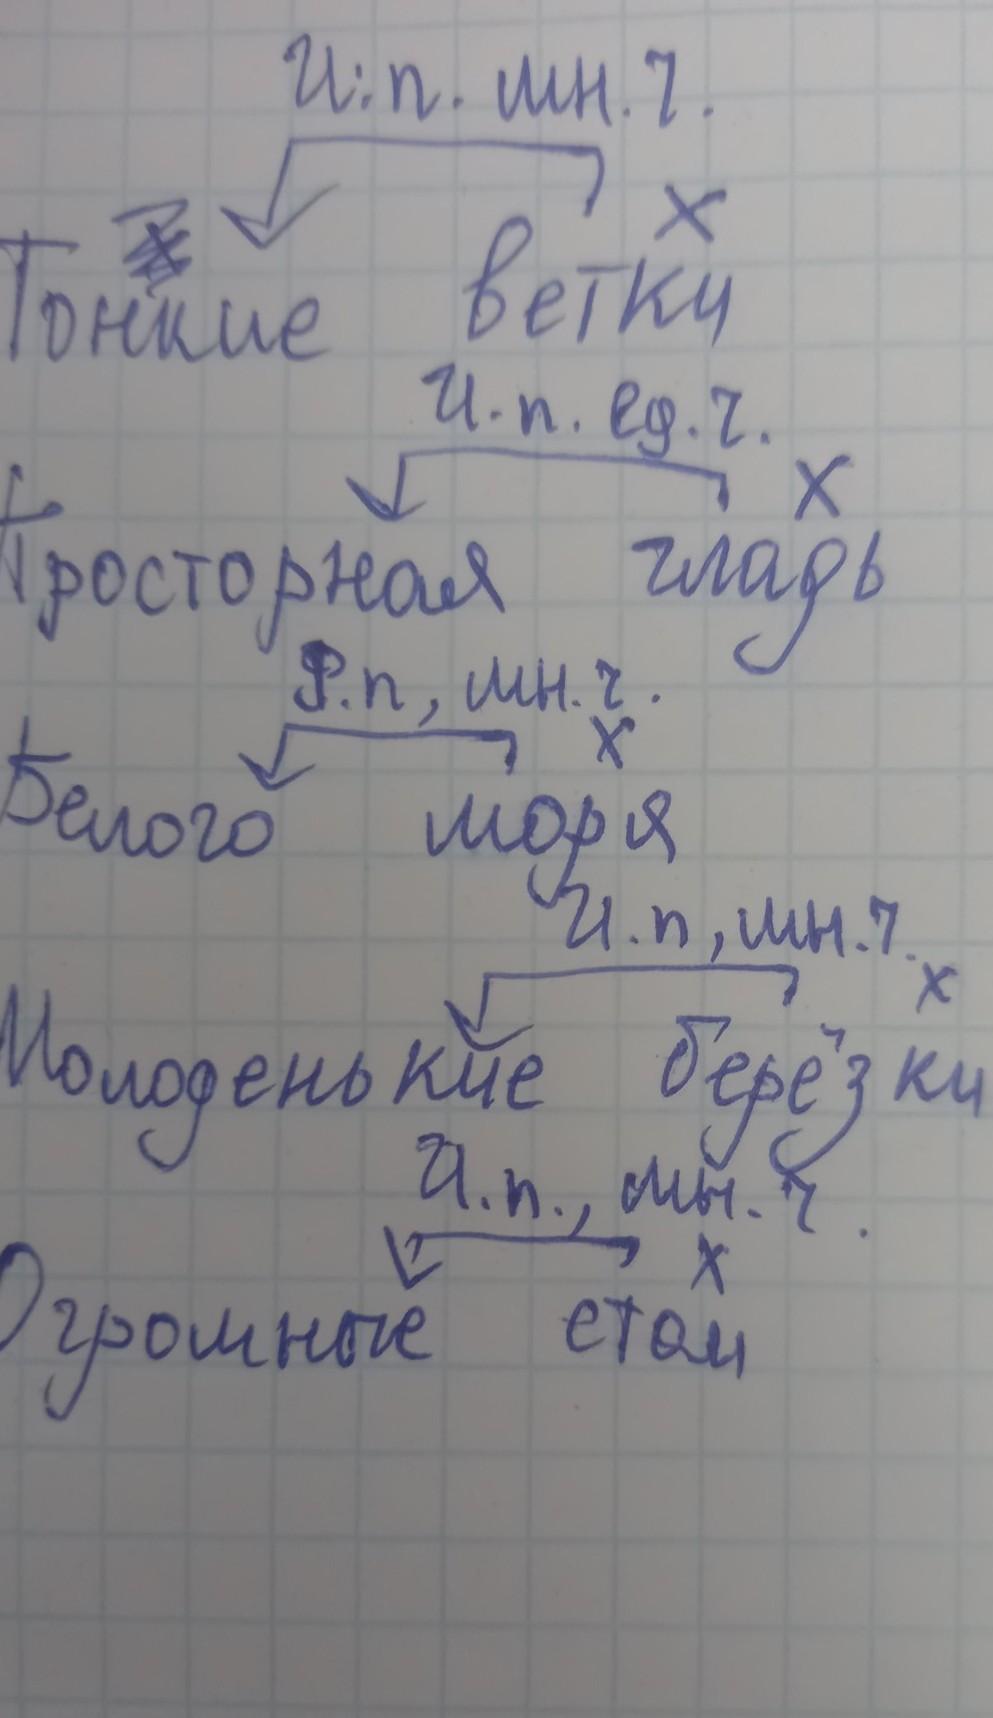 И.п. мн.ч.
х
Тонкие ветки
И.п. ед.ч.
х
Просторная гладь
Р.п, мн.ч.
х
Белого моря
И.п, мн.ч.
х
Молоденькие берёзки
И.п., мн.ч.
х
Огромные